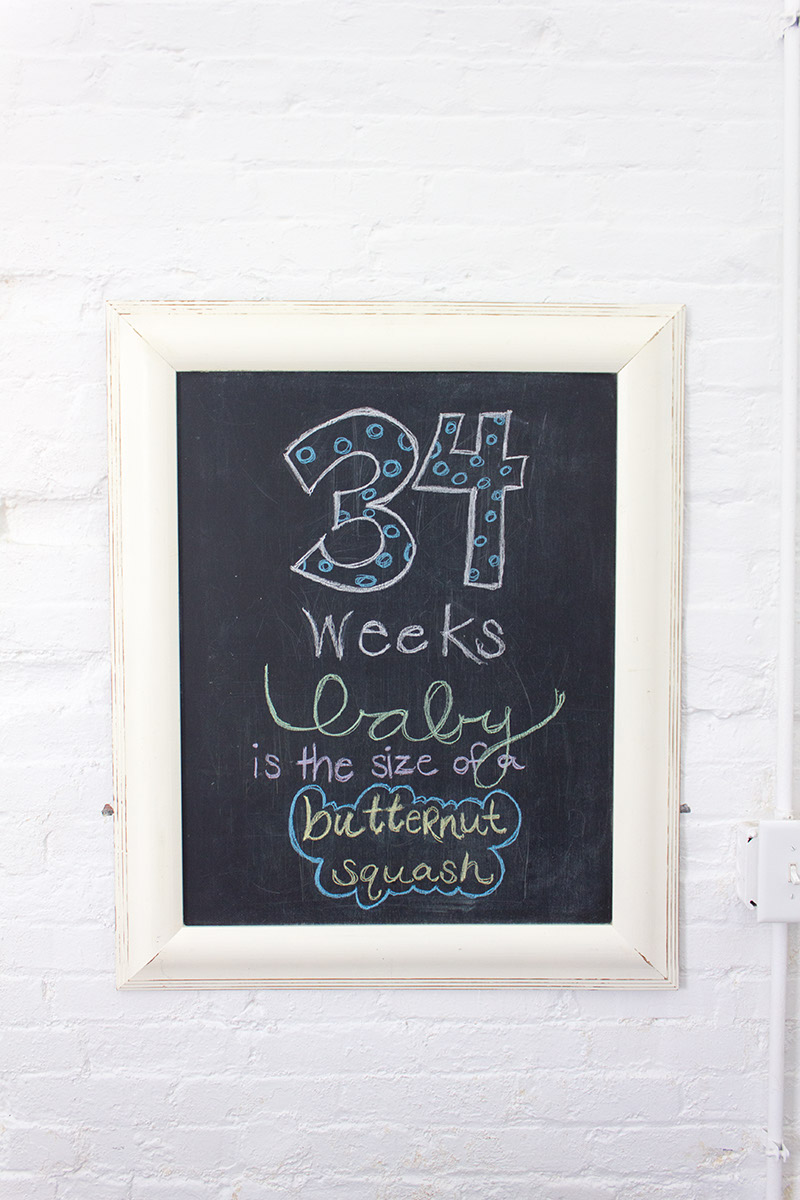 34
Weeks
baby
is the size of a
butternut
squash